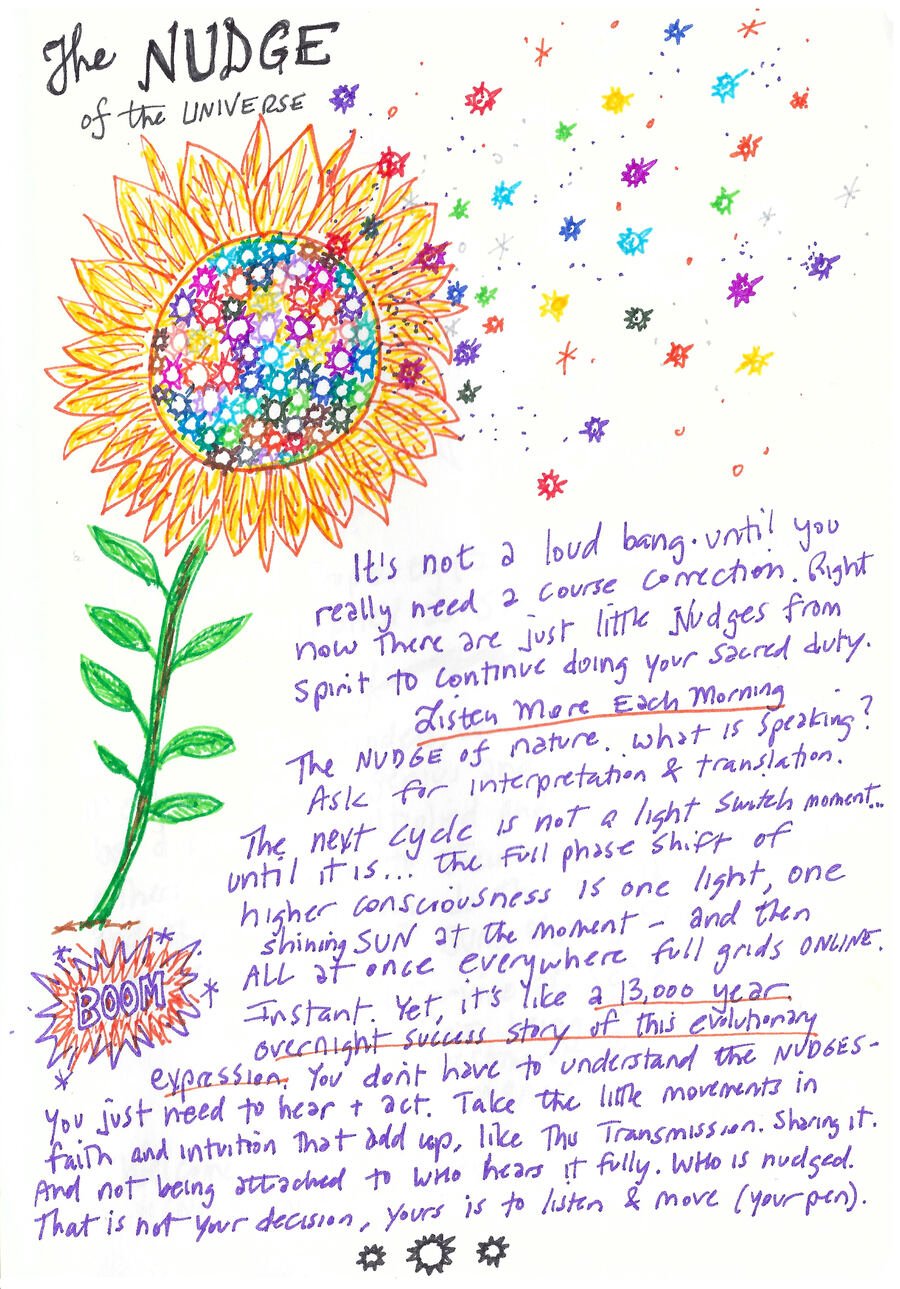 The NUDGE
of the UNIVERSE
It's not a loud bang. until you
really need a course correction. Right
now there are just little Nudges from
spirit to continue doing your sacred duty.
Listen More Each Morning
The NUDGE of nature. What is speaking?
Ask for interpretation & translation.
The next cycle is not a light switch moment...
until it is... the full phase shift of
higher consciousness is one light, one
shining SUN at the moment - and then
ALL at once everywhere full grids ONLINE.
Instant. Yet, it's like a 13,000 year
overnight success story of this evolutionary
BOOM
expression. You don't have to understand the NUDGES-
You just need to hear + act. Take the little movements in
faith and intuition that add up, like This Transmission. Sharing it.
And not being attached to WHO hears it fully. WHO is nudged.
That is not your decision, yours is to listen & move (your pen).